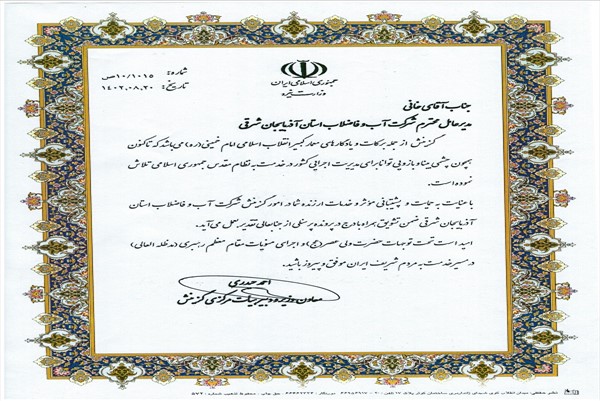 جمهوری اسلامی ایران
وزارت نیرو
شماره: ۱۰/۱۰۱۵/ص
تاریخ: ۱۴۰۲،۰۸،۲۰
جناب آقای خانی
مدیرعامل محترم شرکت آب و فاضلاب استان آذربایجان شرقی
گزینش از جمله برکات و یادگارهای معمار کبیر انقلاب اسلامی امام خمینی (ره) می‌باشد که تاکنون
همچون چشمی بینا و بازویی توانا برای مدیریت اجرایی کشور در خدمت به نظام مقدس جمهوری اسلامی تلاش
نموده است.
با عنایت به حمایت و پشتیبانی مؤثر و خدمات ارزنده شما در امور گزینش شرکت آب و فاضلاب استان
آذربایجان شرقی ضمن تشویق همراه با درج در پرونده پرسنلی از جنابعالی تقدیر بعمل می‌آید.
امید است تحت توجهات حضرت ولی عصر (عج) و اجرای منویات مقام معظم رهبری (مدظله العالی)
در مسیر خدمت به مردم شریف ایران موفق و پیروز باشید.
احمد حیدری
معاون وزیر و دبیر هیات مرکزی گزینش